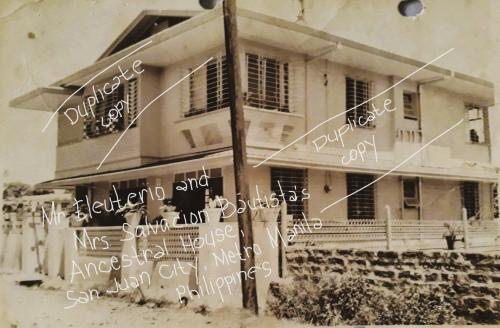 Duplicate
copy
Duplicate
copy
Mr. Eleuterio and
Mrs Salvacion Bautista's
Ancestral House
San Juan City, Metro Manila
Philippines